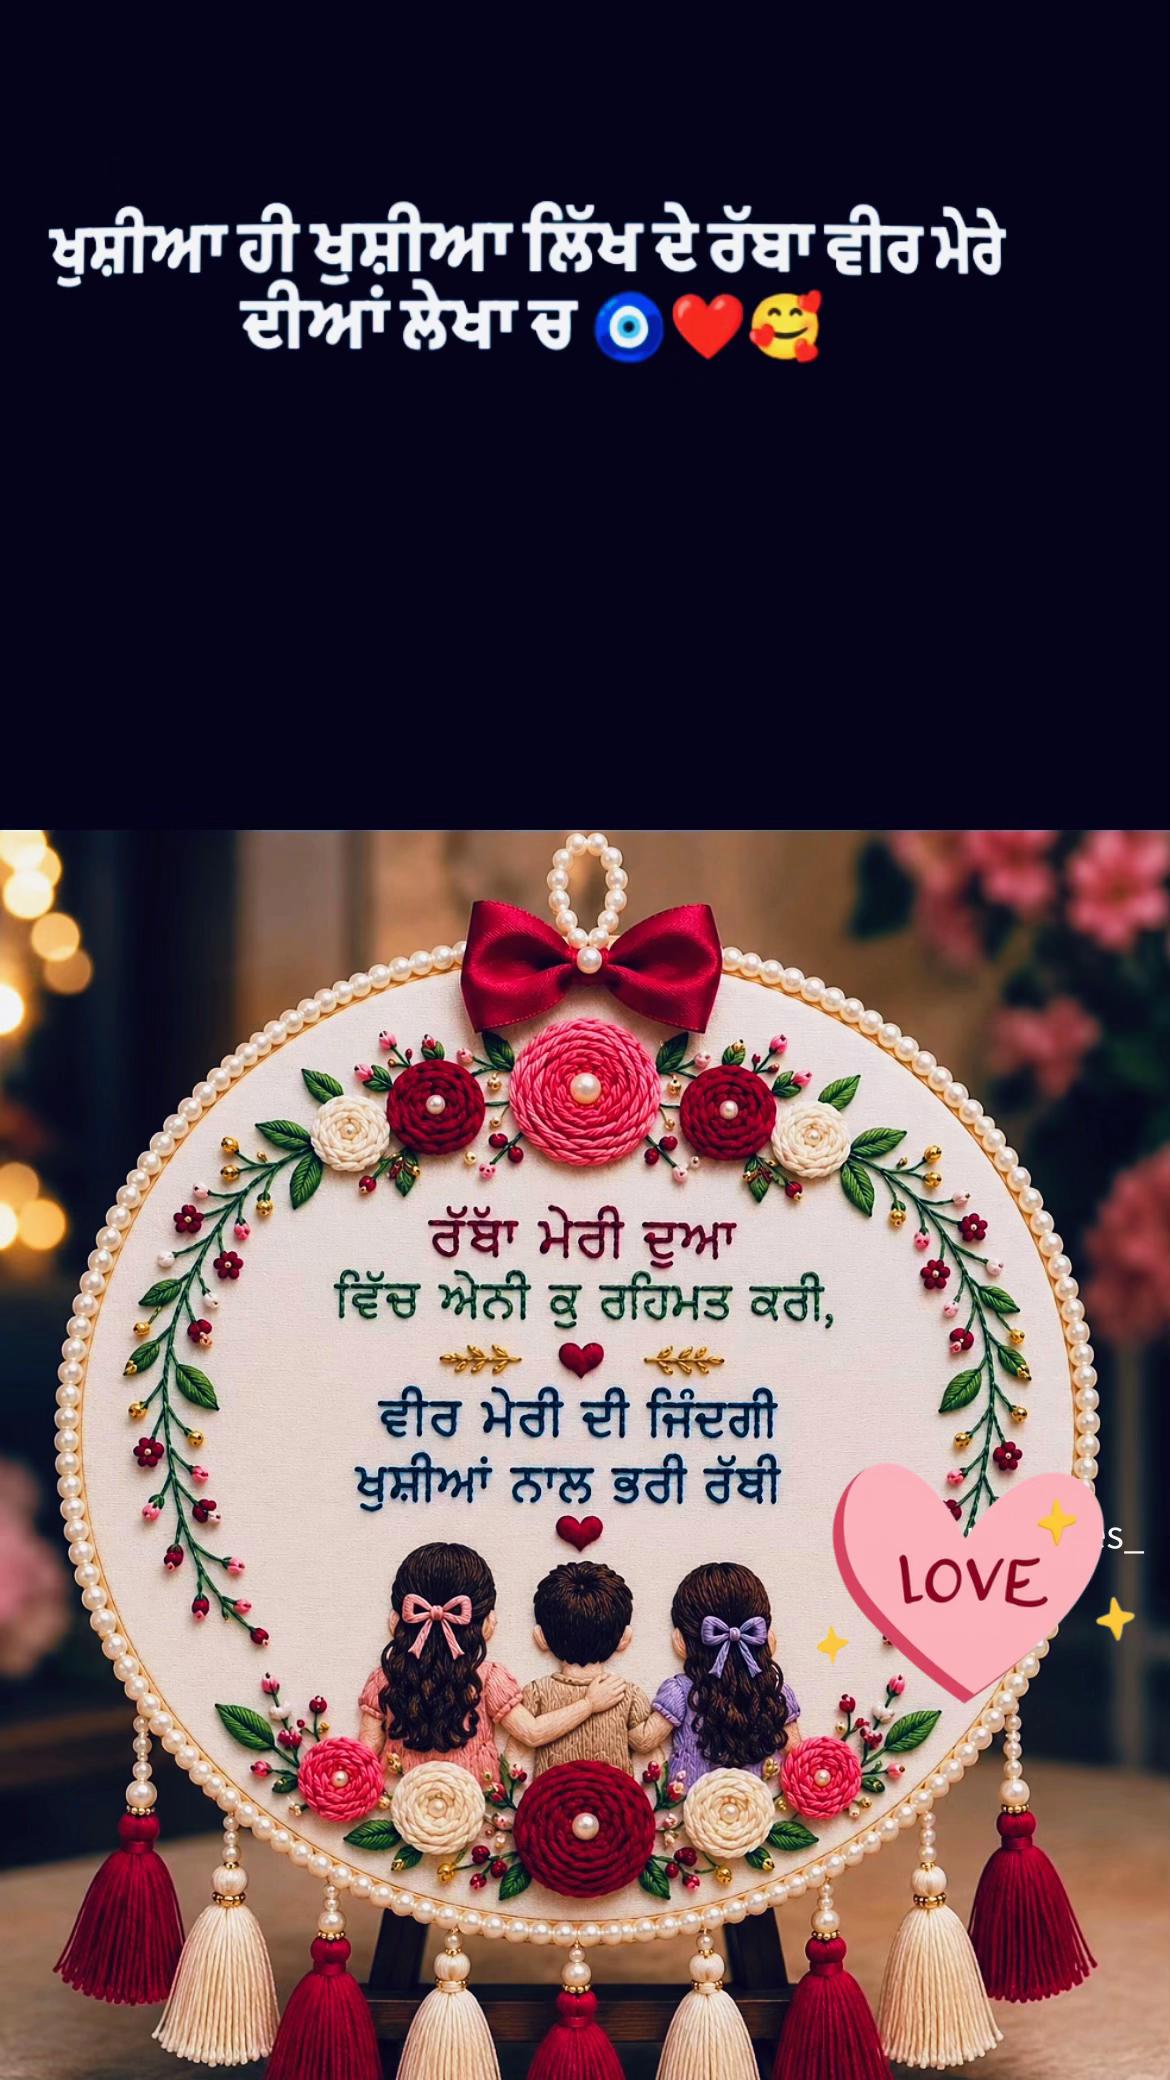 ਖੁਸ਼ੀਆ ਹੀ ਖੁਸ਼ੀਆ ਲਿੱਖ ਦੇ ਰੱਬਾ ਵੀਰ ਮੇਰੇ
ਦੀਆਂ ਲੇਖਾ ਚ 🧿❤️🥰
ਰੱਬਾਂ ਮੇਰੀ ਦੁਆ
ਵਿੱਚ ਐਨੀ ਕੁ ਰਹਿਮਤ ਕਰੀ,
ਵੀਰ ਮੇਰੀ ਦੀ ਜਿੰਦਗੀ
ਖੁਸ਼ੀਆਂ ਨਾਲ ਭਰੀ ਰੱਬੀ
LOVE